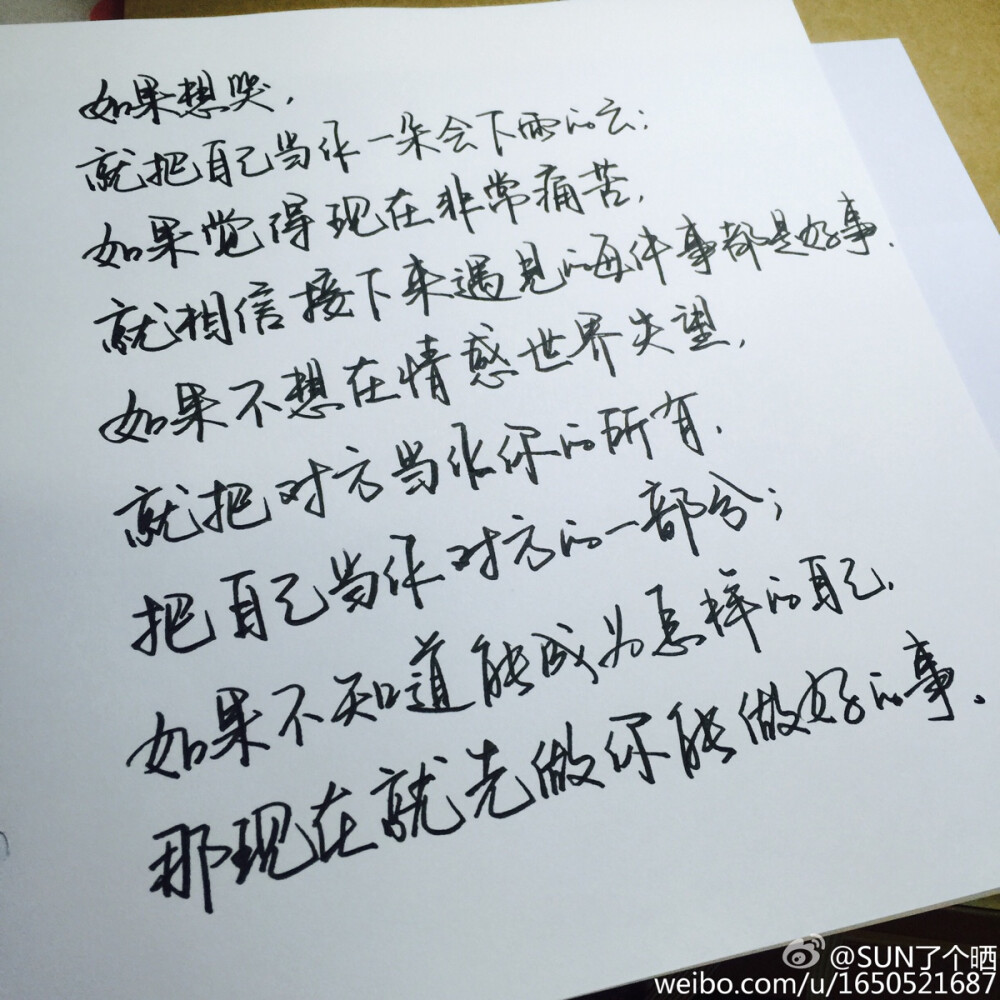 如果想哭,
就把自己当作一朵会下雨的云;
如果觉得现在非常痛苦,
就相信接下来遇见的每件事都是好事.
如果不想在情感世界失望,
就把对方当作你的所有,
把自己当作对方的一部分;
如果不知道能成为怎样的自己,
那现在就先做你能做好的事。
@SUN了个晒
weibo.com/u/1650521687